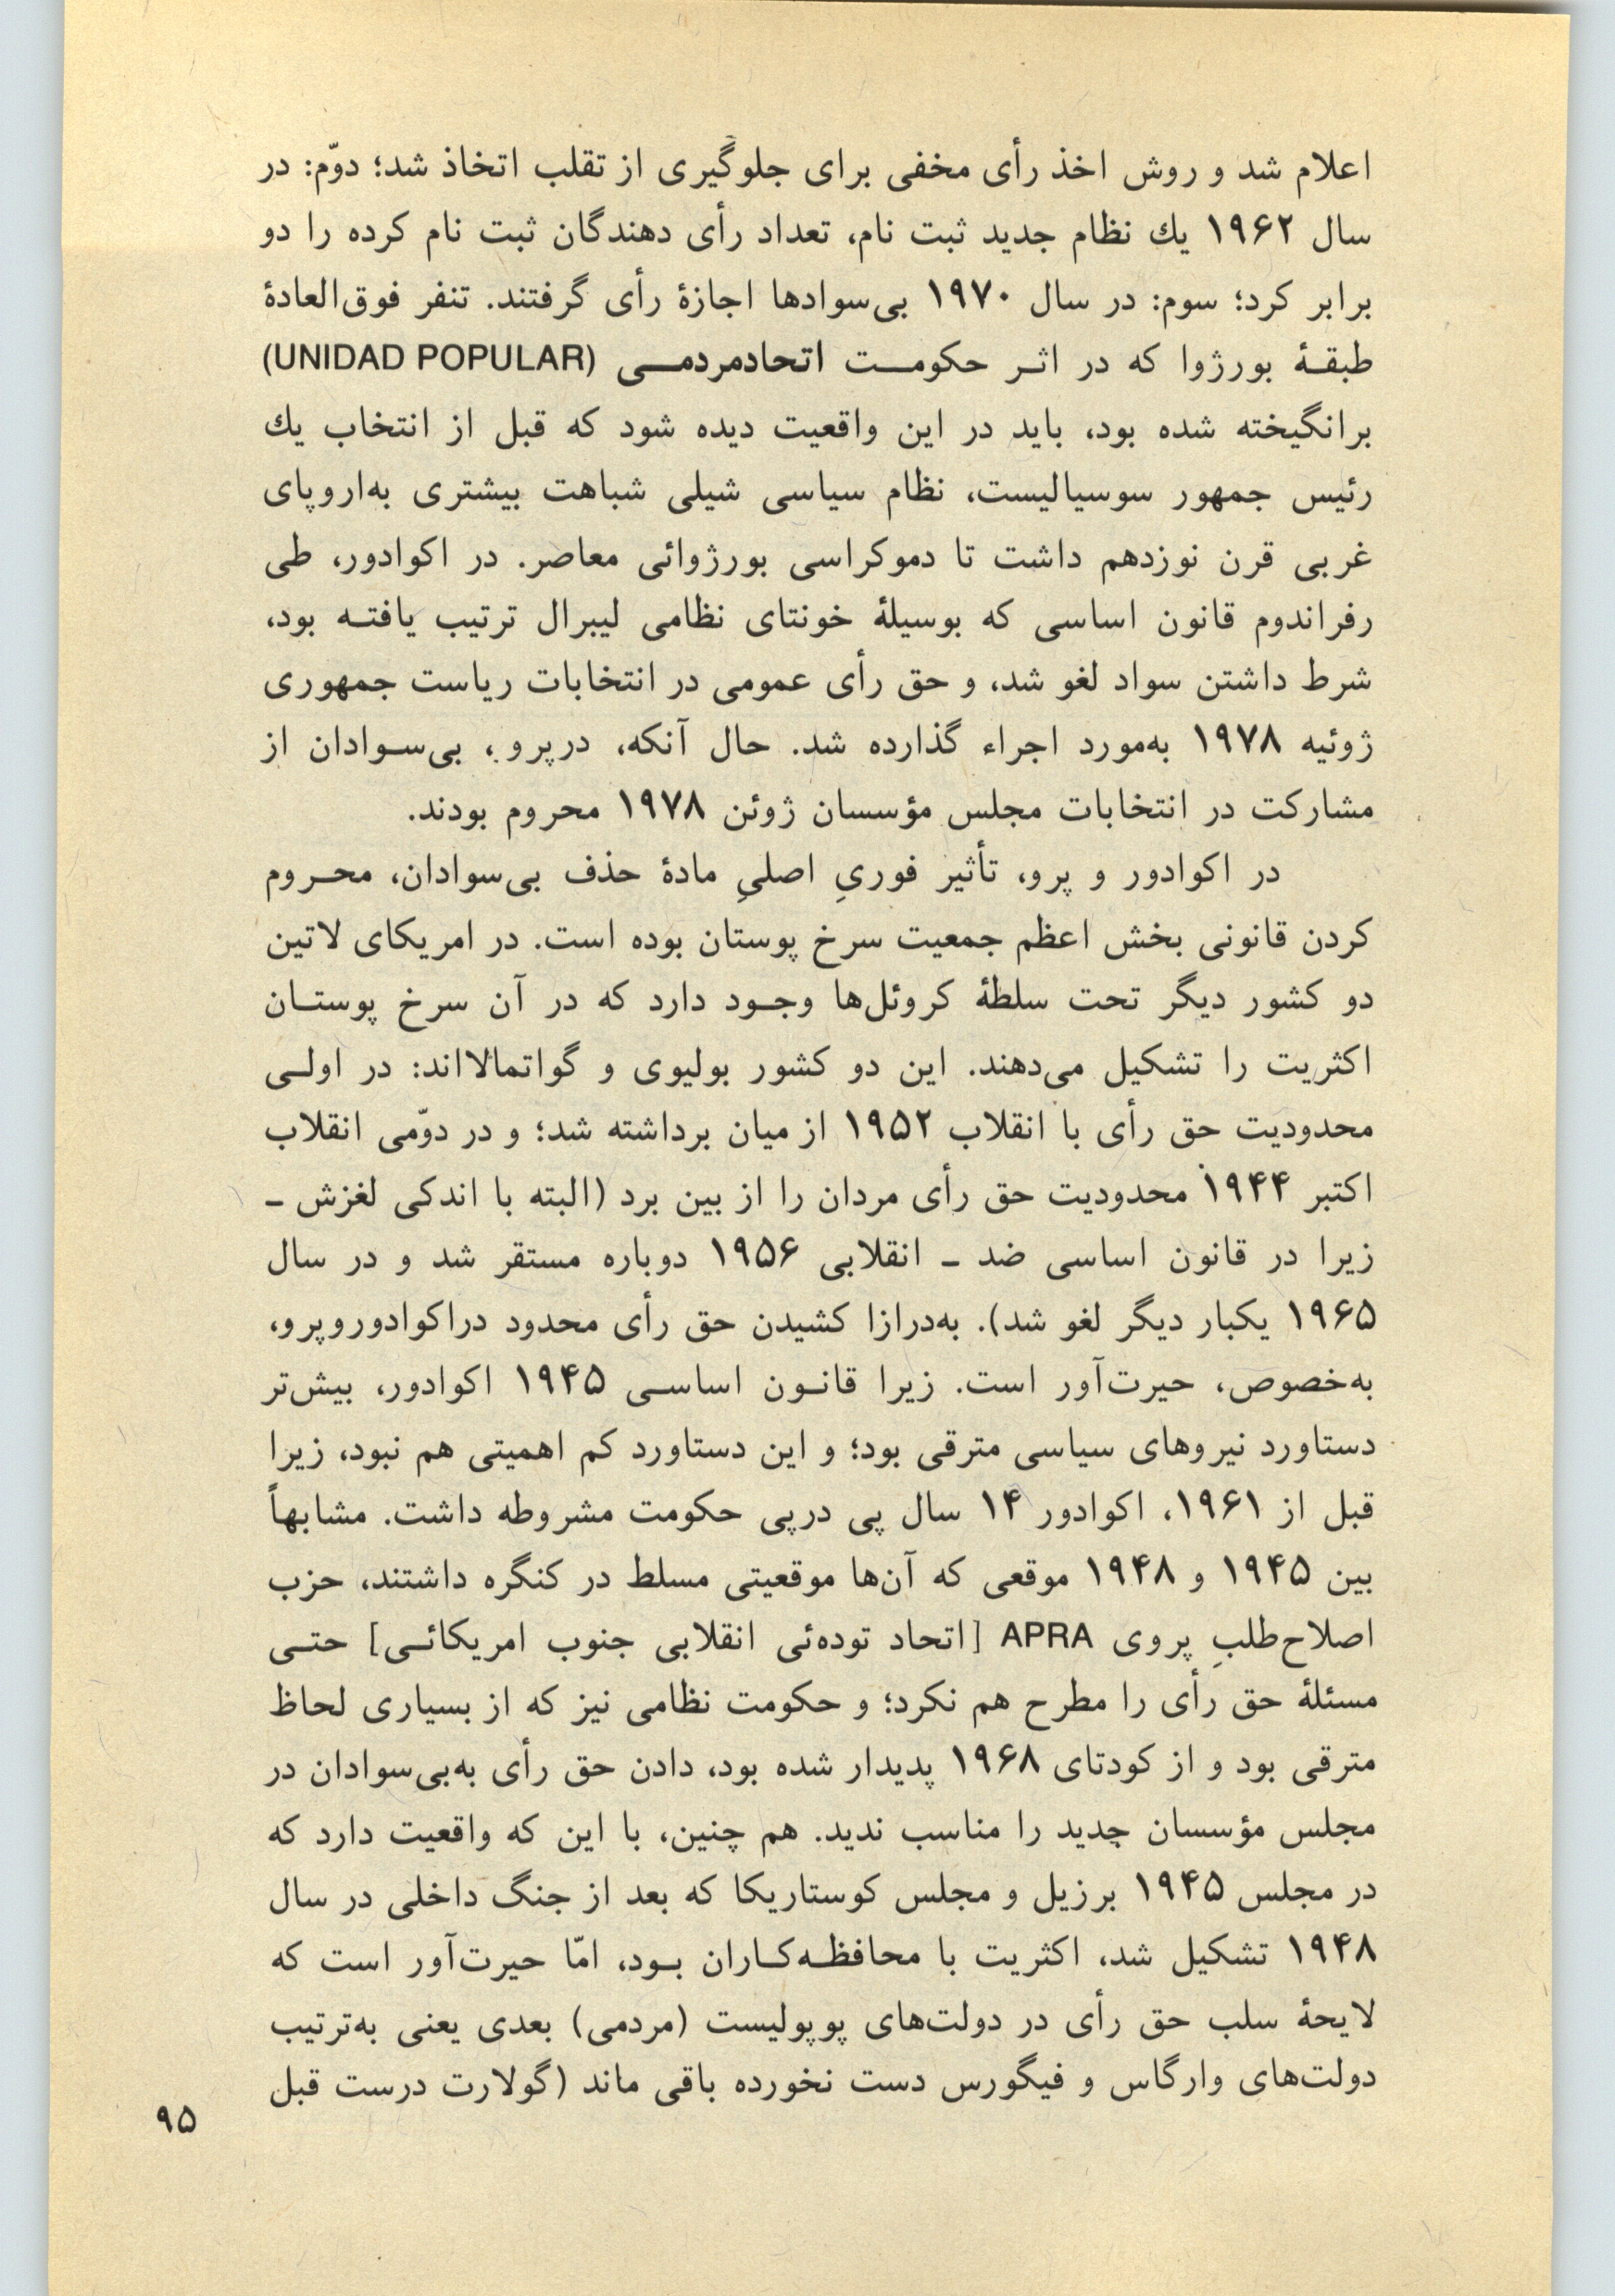 اعلام شد و روش اخذ رأی مخفی برای جلوگیری از تقلب اتخاذ شد؛ دوّم: در
سال ۱۹۶۲ یك نظام جدید ثبت نام، تعداد رأی دهندگان ثبت نام کرده را دو
برابر کرد؛ سوم: در سال ۱۹۷۰ بی‌سوادها اجازهٔ رأی گرفتند. تنفر فوق‌العادهٔ
طبقـهٔ بورژوا که در اثـر حکومـت اتحادمردمـی (UNIDAD POPULAR)
برانگیخته شده بود، باید در این واقعیت دیده شود که قبل از انتخاب یك
رئیس جمهور سوسیالیست، نظام سیاسی شیلی شباهت بیشتری به‌اروپای
غربی قرن نوزدهم داشت تا دموکراسی بورژوائی معاصر. در اکوادور، طی
رفراندوم قانون اساسی که بوسیلهٔ خونتای نظامی لیبرال ترتیب یافتـه بود،
شرط داشتن سواد لغو شد، و حق رأی عمومی در انتخابات ریاست جمهوری
ژوئیه ۱۹۷۸ به‌مورد اجراء گذارده شد. حال آنکه، درپرو، بی‌سـوادان از
مشارکت در انتخابات مجلس مؤسسان ژوئن ۱۹۷۸ محروم بودند.
در اکوادور و پرو، تأثیر فوریِ اصلیِ مادهٔ حذف بی‌سوادان، محـروم
کردن قانونی بخش اعظم جمعیت سرخ پوستان بوده است. در امریکای لاتین
دو کشور دیگر تحت سلطهٔ کروئل‌ها وجـود دارد که در آن سرخ پوستـان
اکثریت را تشکیل می‌دهند. این دو کشور بولیوی و گواتمالااند: در اولـی
محدودیت حق رأی با انقلاب ۱۹۵۲ از میان برداشته شد؛ و در دوّمی انقلاب
اکتبر ۱۹۴۴ محدودیت حق رأی مردان را از بین برد (البته با اندکی لغزش ـ
زیرا در قانون اساسی ضد ـ انقلابی ۱۹۵۶ دوباره مستقر شد و در سال
۱۹۶۵ یکبار دیگر لغو شد). به‌درازا کشیدن حق رأی محدود دراکوادوروپرو،
به‌خصوص، حیرت‌آور است. زیرا قانـون اساسـی ۱۹۴۵ اکوادور، بیش‌تر
دستاورد نیروهای سیاسی مترقی بود؛ و این دستاورد کم اهمیتی هم نبود، زیرا
قبل از ۱۹۶۱، اکوادور ۱۴ سال پی درپی حکومت مشروطه داشت. مشابهاً
بین ۱۹۴۵ و ۱۹۴۸ موقعی که آن‌ها موقعیتی مسلط در کنگره داشتند، حزب
اصلاح‌طلبِ پروی APRA [اتحاد توده‌ئی انقلابی جنوب امریکائـی] حتـی
مسئلهٔ حق رأی را مطرح هم نکرد؛ و حکومت نظامی نیز که از بسیاری لحاظ
مترقی بود و از کودتای ۱۹۶۸ پدیدار شده بود، دادن حق رأی به‌بی‌سوادان در
مجلس مؤسسان جدید را مناسب ندید. هم چنین، با این که واقعیت دارد که
در مجلس ۱۹۴۵ برزیل و مجلس کوستاریکا که بعد از جنگ داخلی در سال
۱۹۴۸ تشکیل شد، اکثریت با محافظـه‌کـاران بـود، امّا حیرت‌آور است که
لایحهٔ سلب حق رأی در دولت‌های پوپولیست (مردمی) بعدی یعنی به‌ترتیب
دولت‌های وارگاس و فیگورس دست نخورده باقی ماند (گولارت درست قبل
۹۵